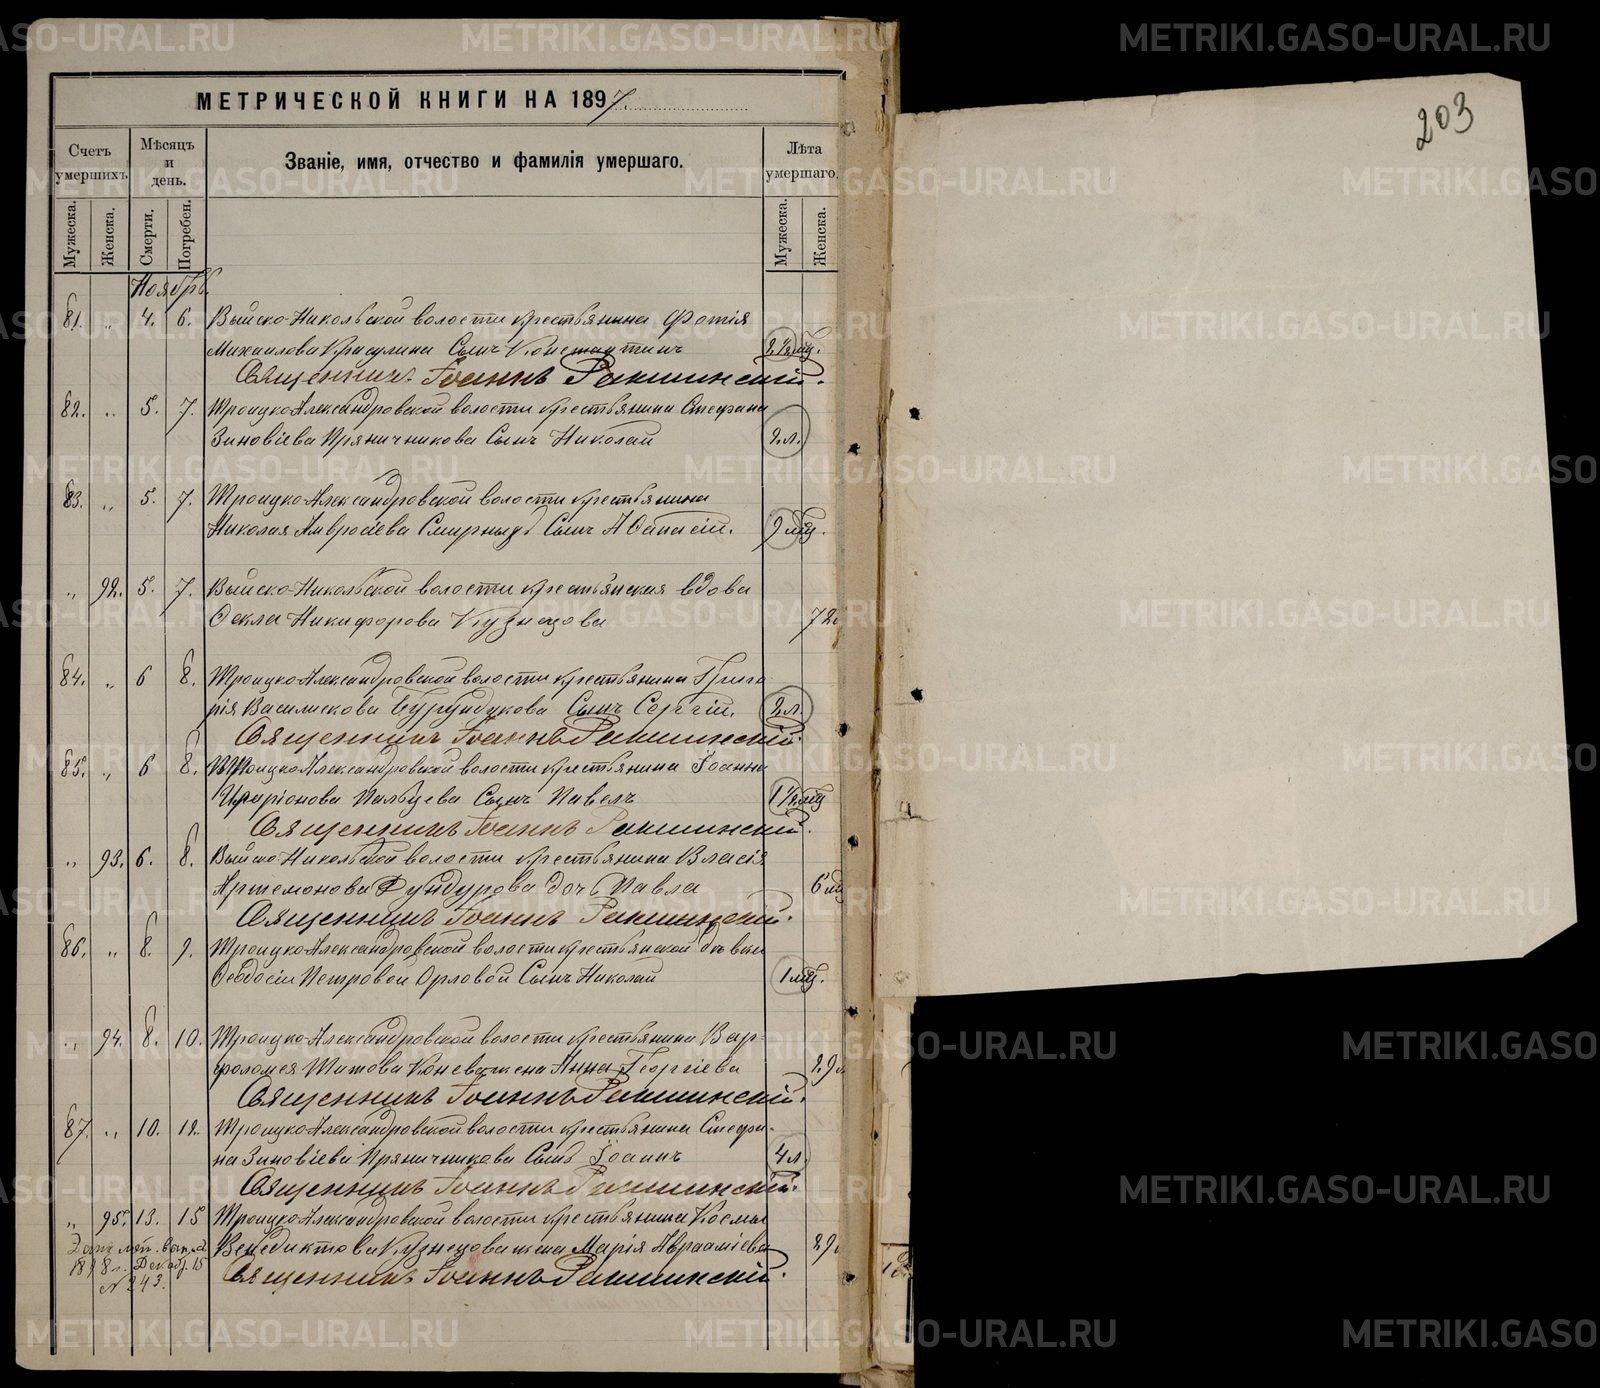 203
МЕТРИЧЕСКОЙ КНИГИ НА 1897.
Счетъ умершихъ.
Мѣсяцъ и день.
Званіе, имя, отчество и фамилія умершаго.
Лѣта умершаго.
Мужеска.
Женска.
Смерти.
Погребен.
Мужеска.
Женска.
Ноябрь
81. „ 4. 6. Выйско-Никольской волости крестьянина Фотія
Михаилова Красулина Сынъ Константинъ 2½ мц.
Священникъ Іоаннъ
82. „ 5. 7. Троицко-Александровской волости крестьянина Стефана
Зиновіева Пряничникова Сынъ Николай 2 л.
83. „ 5. 7. Троицко-Александровской волости крестьянина
Николая Амвросіева Смирныхъ Сынъ Аѳанасій. 9 мц.
„ 92. 5. 7. Выйско-Никольской волости крестьянская вдова
Ѳекла Никифорова Кузнецова 72
84. „ 6 8. Троицко-Александровской волости крестьянина Григо
рія Василискова Бурундукова Сынъ Сергій. 2 л.
Священникъ Іоаннъ
85. „ 6 8. Троицко-Александровской волости крестьянина Іоанна
Иларіонова Пальцева Сынъ Павелъ 1½ мц
Священникъ Іоаннъ
„ 93. 6. 8. Выйско-Никольской волости крестьянина Власія
Артемонова Фундурова дочь Павла 6 мц
Священникъ Іоаннъ
86. „ 8. 9. Троицко-Александровской волости крестьянской дѣвки
Ѳеодосіи Петровой Орловой Сынъ Николай 1 мц.
„ 94. 8. 10. Троицко-Александровской волости крестьянина Вар-
фоломея Титова Конева жена Анна Георгіева 29
Священникъ Іоаннъ
87. „ 10. 12. Троицко-Александровской волости крестьянина Стефа-
на Зиновіева Пряничникова Сынъ Іоаннъ 4 л.
Священникъ Іоаннъ
„ 95. 13. 15 Троицко-Александровской волости крестьянина Космы
Венедиктова Кузнецова жена Марія Аврааміева 29
1898 г. Декабр. 15
№ 243.
Священникъ Іоаннъ
METRIKI.GASO-URAL.RU